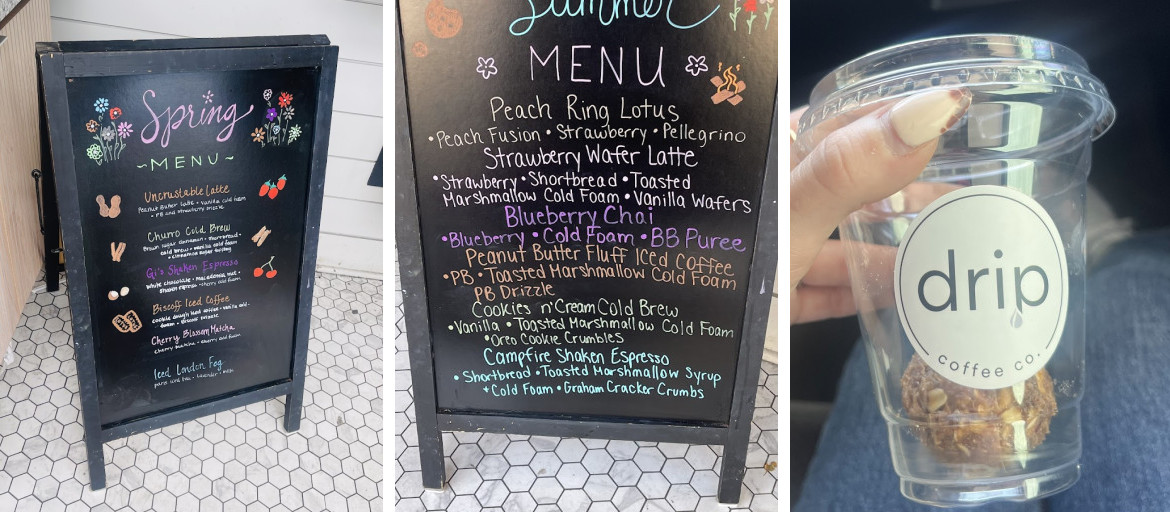 Spring
~MENU~
Uncrustable Latte
Peanut Butter Latte • Vanilla cold foam
• PB and strawberry drizzle
Churro Cold Brew
Brown sugar cinnamon • shortbread •
cold brew • vanilla cold foam
• cinnamon sugar
Gi's Shaken Espresso
White chocolate • macadamia nut •
shaken espresso •
Biscoff Iced Coffee
cookie dough iced coffee • vanilla cold
foam • Biscoff
Cherry Blossom Matcha
cherry matcha • cherry cold foam
Iced London Fog
lavender •
Summer
MENU
Peach Ring Lotus
•Peach Fusion • Strawberry • Pellegrino
Strawberry Wafer Latte
•Strawberry • Shortbread • Toasted
Marshmallow Cold Foam • Vanilla Wafers
Blueberry Chai
•Blueberry • Cold Foam • BB Puree
Peanut Butter Fluff Iced Coffee
•PB • Toasted Marshmallow Cold Foam
PB Drizzle
Cookies n' Cream Cold Brew
•Vanilla • Toasted Marshmallow Cold Foam
•Oreo Cookie Crumbles
Campfire Shaken Espresso
• Shortbread • Toasted Marshmallow Syrup
• Cold Foam • Graham Cracker Crumbs
drip
coffee co.